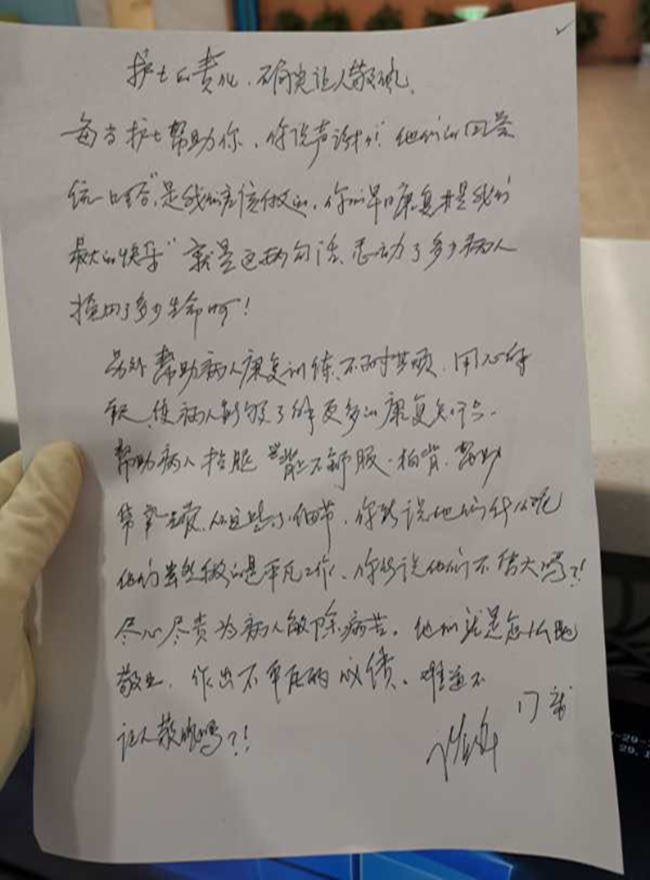 护士的责任，不得不让人敬佩。
每当护士帮助你，你说声谢谢！他们的回答
统一口答"是我们应该做的，你们早日康复才是我们
最大的快乐"就是这两句话、感动了多少病人
挽回了多少生命啊！
另外帮助病人康复训练、不时。用心
使病人能够了解更多的康复知识。
帮助病人抬腿 背不舒服、拍背、帮助
从这些小细节，你能说他们什么呢
他们虽然做的是平凡工作、你能说他们不伟大吗？！
尽心尽责为病人解除病苦。他们就是怎么地
敬业，作出不平凡的业绩。难道不
让人敬佩吗？！